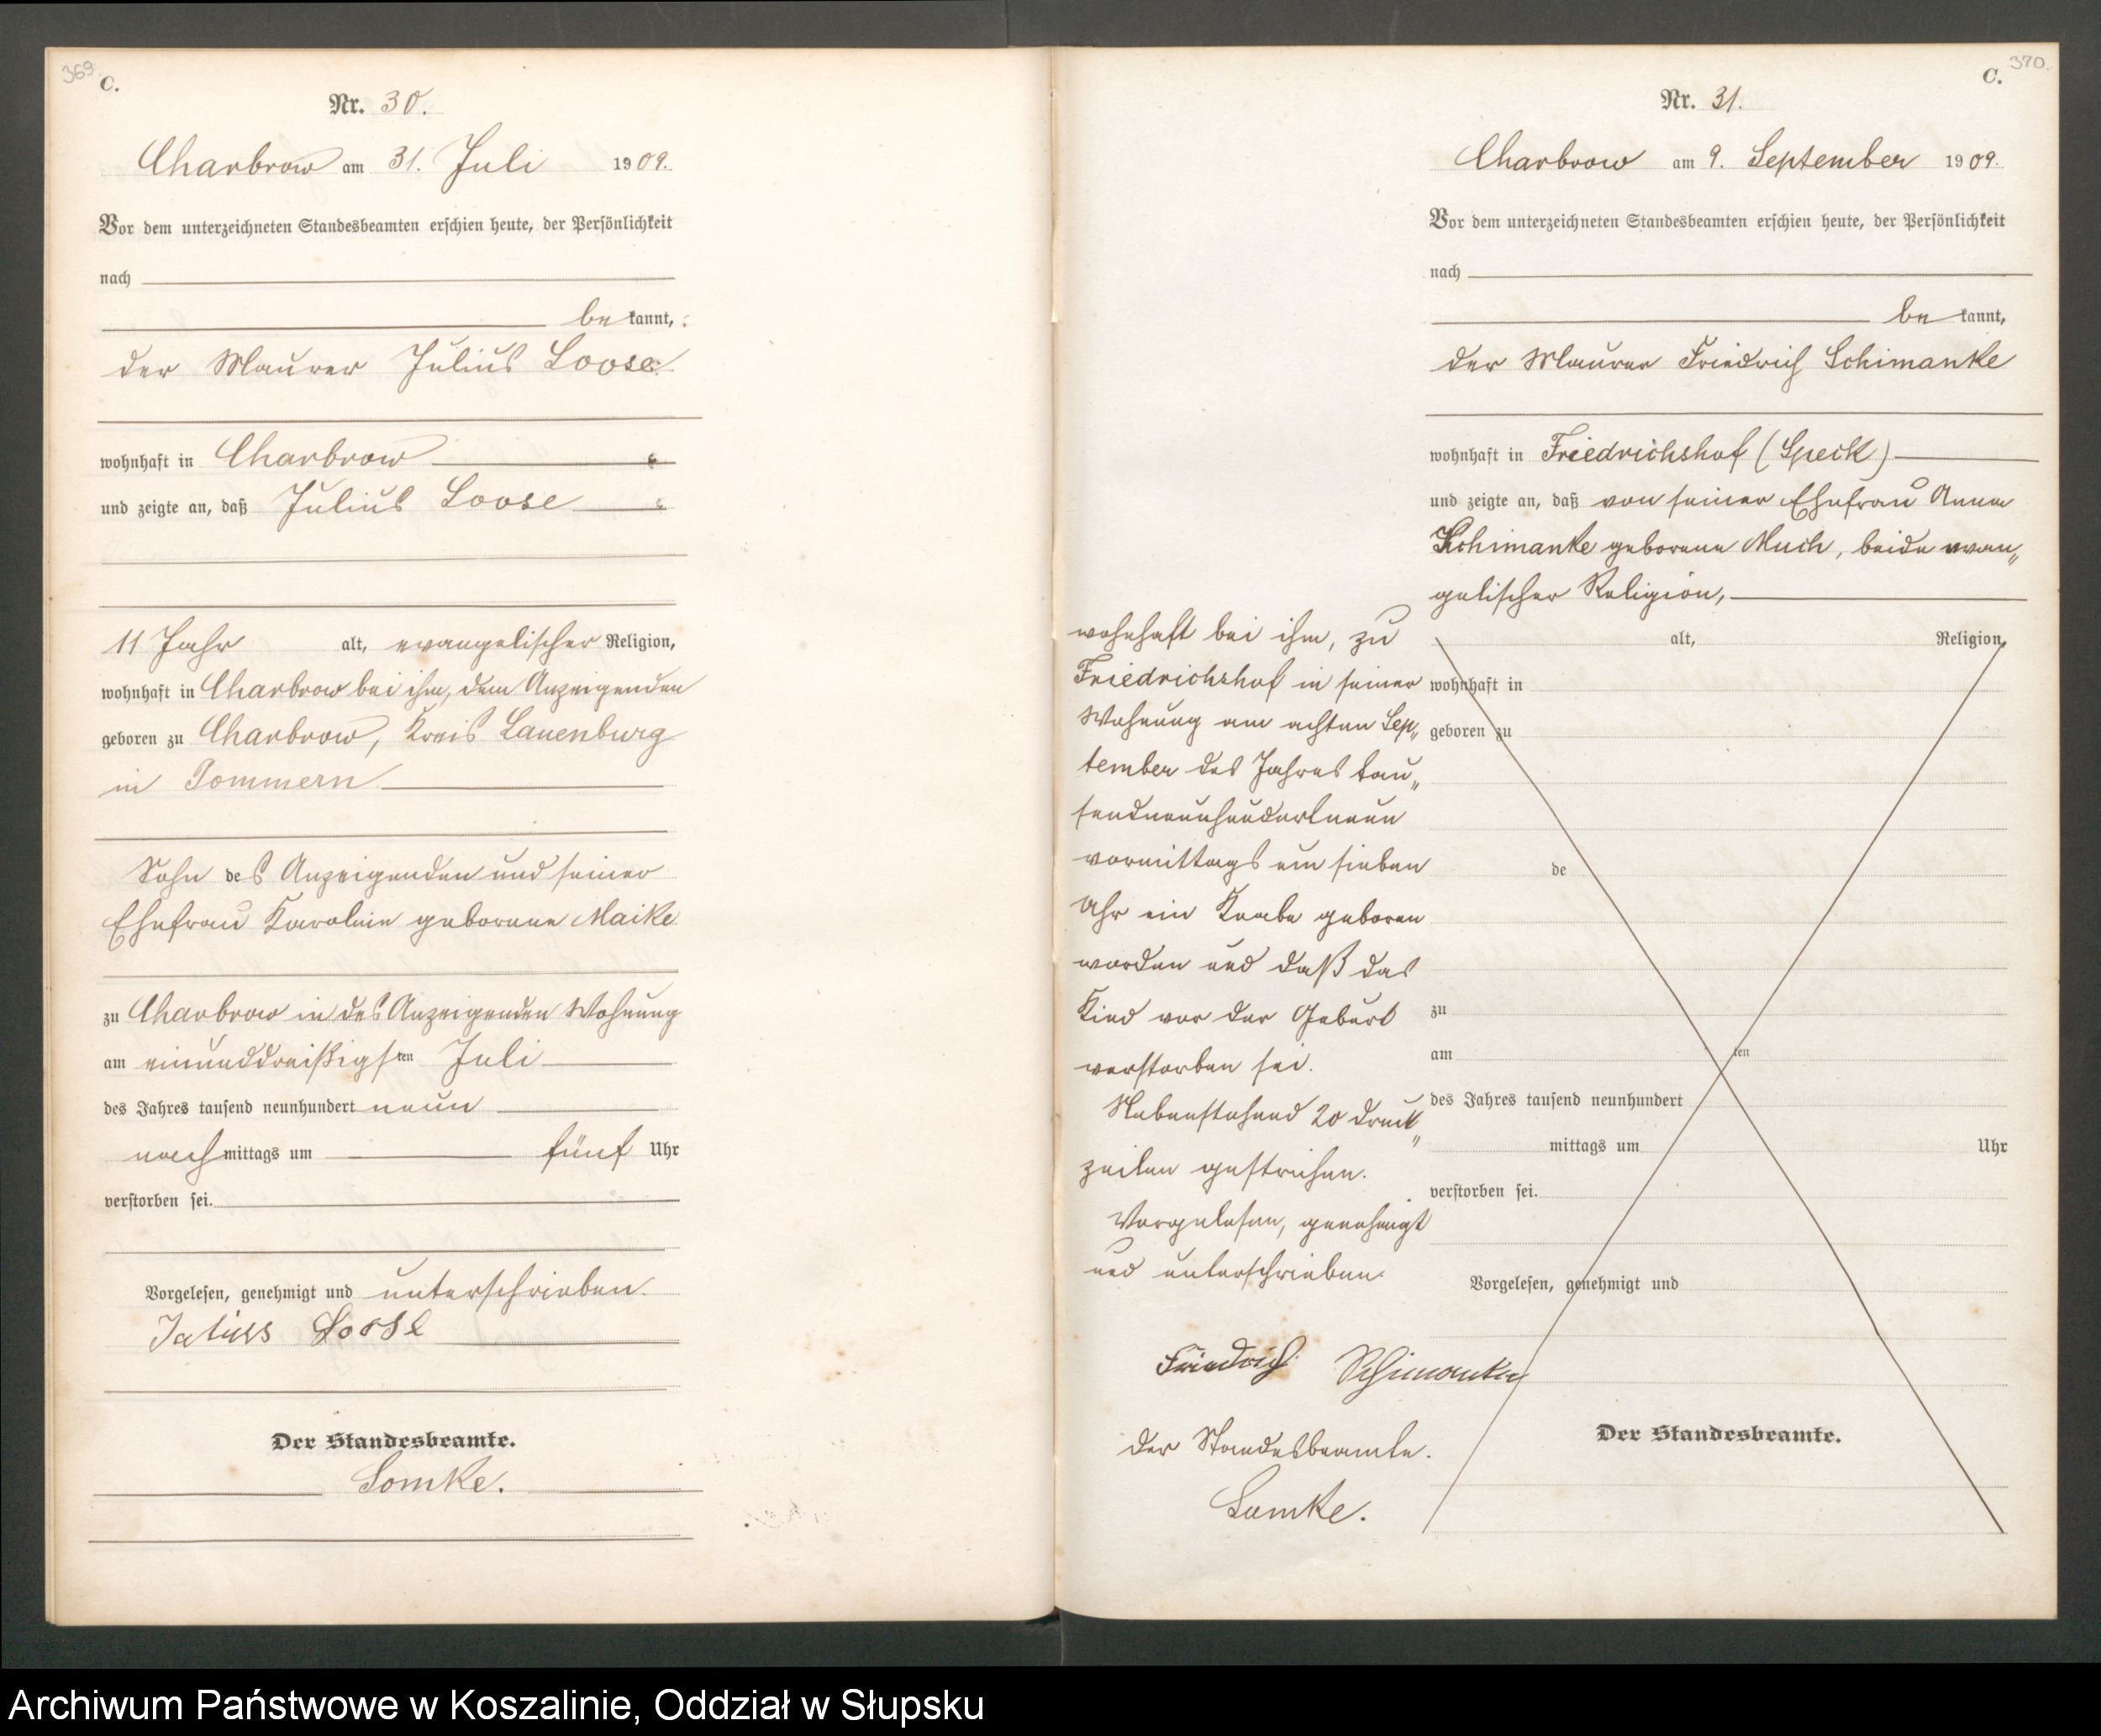 369.
C.
Nr. 30.
Charbrow am 31. Juli 1909.
Vor dem unterzeichneten Standesbeamten erschien heute, der Persönlichkeit
nach
be kannt,
der Maurer Julius Loose
wohnhaft in Charbrow
und zeigte an, daß Julius Loose
11 Jahr alt, evangelischer Religion,
wohnhaft in Charbrow bei ihm, dem Anzeigenden
geboren zu Charbrow, Kreis Lauenburg
in Pommern
Sohn des Anzeigenden und seiner
Ehefrau Karoline geborene Maike
zu Charbrow in des Anzeigenden Wohnung
am einunddreißigsten Juli
des Jahres tausend neunhundert neun
nachmittags um fünf Uhr
verstorben sei.
Vorgelesen, genehmigt und unterschrieben.
Julius Loose
Der Standesbeamte.
Lomke.
370.
C.
Nr. 31.
Charbrow am 9. September 1909.
Vor dem unterzeichneten Standesbeamten erschien heute, der Persönlichkeit
nach
be kannt,
der Maurer Friedrich Schimanke
wohnhaft in Friedrichshof (Speck)
und zeigte an, daß von seiner Ehefrau Anna
Schimanke geborene Much, beide evan„
gelischer Religion,
wohnhaft bei ihm, zu
Friedrichshof in seiner
Wohnung am achten Sep„
tember des Jahres tau„
sendneunhundertneun
vormittags um sieben
Uhr ein Knabe geboren
worden und daß das
Kind vor der Geburt
verstorben sei.
Nebenstehend 20 Druck„
zeilen gestrichen.
Vorgelesen, genehmigt
und unterschrieben.
Friedrich Schimanke
Der Standesbeamte.
Lomke.
alt, Religion,
wohnhaft in
geboren zu
de
zu
am ten
des Jahres tausend neunhundert
mittags um Uhr
verstorben sei.
Vorgelesen, genehmigt und
Der Standesbeamte.
Archiwum Państwowe w Koszalinie, Oddział w Słupsku